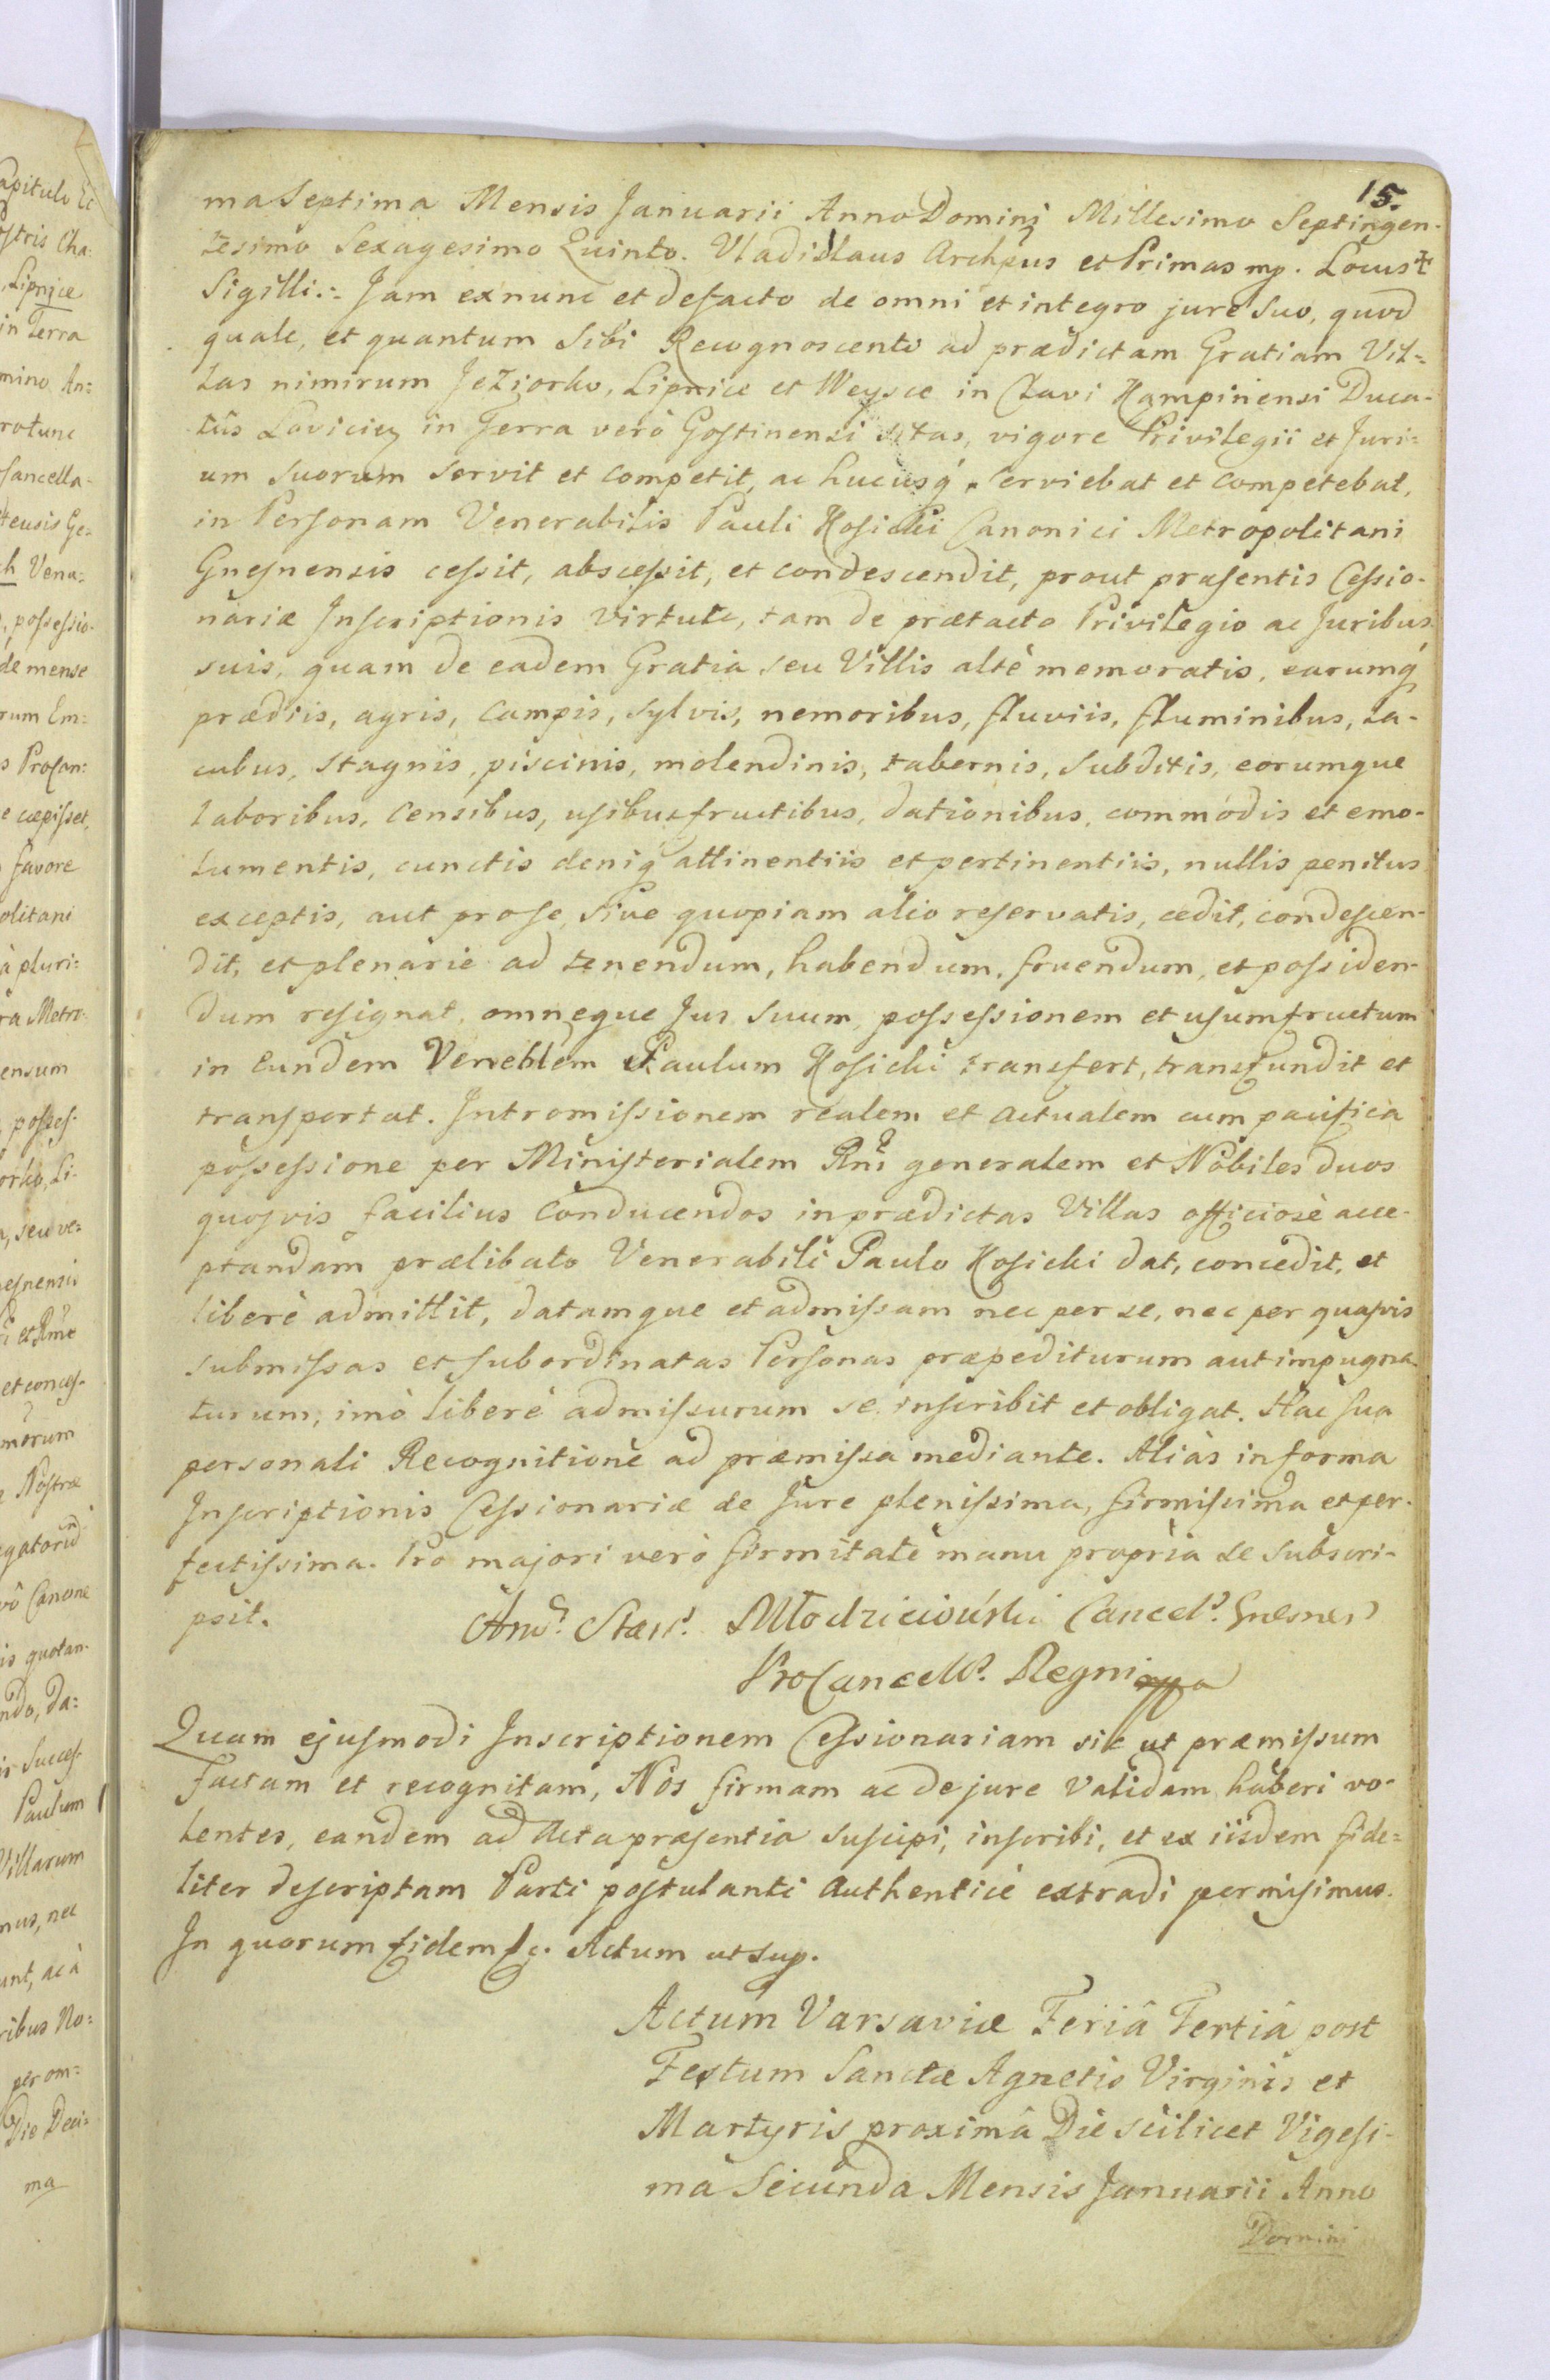 15.
ma Septima Mensis Januarii Anno Domini Millesimo Septingen-
tesimo Sexagesimo Quinto. Vladislaus Archpus et Primas mp. Locus
Sigilli. Jam ex nunc et de facto de omni et integro jure suo, quod
quale, et quantum Sibi Recognoscenti ad prædictam Gratiam Vil=
las nimirum Jeziorko, Lipnice et Weysce in Clavi Kampinensi Duca-
tûs Lovicien in Terra verò Gostinensi sitas, vigore Privilegii et Juri=
um suorum servit et competit, ac hucusq́ serviebat et competebat,
in Personam Venerabilis Pauli Kosicki Canonici Metropolitani
Gnesnensis cessit, abscessit, et condescendit, prout præsentis Cessio-
nariæ Inscriptionis virtute, tam de prætacto Privilegio ac Juribus
suis, quam de eadem Gratia seu Villis altè memoratis, earumq́
prædiis, agris, campis, sylvis, nemoribus, fluviis, fluminibus, la-
cubus, stagnis, piscinis, molendinis, tabernis, subditis, eorumque
laboribus, censibus, usibusfructibus, dationibus, commodis et emo-
lumentis, cunctis deniq́ attinentiis et pertinentiis, nullis penitus
exceptis, aut pro se, sive quopiam alio reservatis, cedit, condescen-
dit, et plenarie ad tenendum, habendum, fruendum, et possiden-
dum resignat, omneque Jus suum, possessionem et usumfructum
in eundem Venerblem Paulum Kosicki transfert, transfundit et
transportat. Intromissionem realem et actualem cum pacifica
possessione per Ministerialem Rni generalem et Nobiles duos
quosvis facilius conducendos in prædictas Villas officiosè acce-
ptandam prælibato Venerabili Paulo Kosicki dat, concedit, et
liberè admittit, datamque et admissam nec per se, nec per quasvis
submissas et subordinatas Personas præpediturum aut impugna-
turum, imò liberè admissurum se inscribit et obligat. Hac sua
personali Recognitione ad præmissa mediante. Aliàs in forma
Inscriptionis Cessionariæ de Jure plenissima, firmissima et per-
fectissima. Pro majori verò firmitate manu propria se subscri-
psit. Ant. Młodzieiowski Cancel. Gnesnen
ProCancell. Regni
Quam ejusmodi Inscriptionem Cessionariam sic ut præmissum
factam et recognitam, Nos firmam ac de jure validam haberi vo-
lentes, eandem ad Acta præsentia suscipi, inscribi, et ex iisdem fide=
liter descriptam Parti postulanti authenticè extradi permisimus.
In quorum fidem &c. Actum ut sup.
Actum Varsaviæ Feriâ Tertiâ post
Festum Sanctæ Agnetis Virginis et
Martyris proximâ Die scilicet Vigesi-
ma Secunda Mensis Januarii Anno
Domini